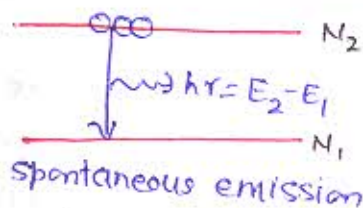 N₂
hν = E₂ - E₁
N₁
spontaneous emission